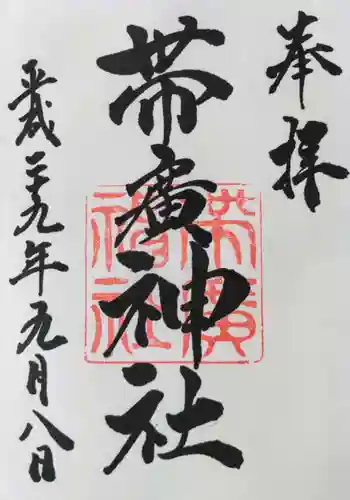 奉拝
帯廣神社
平成二十九年九月八日
帯廣
神社